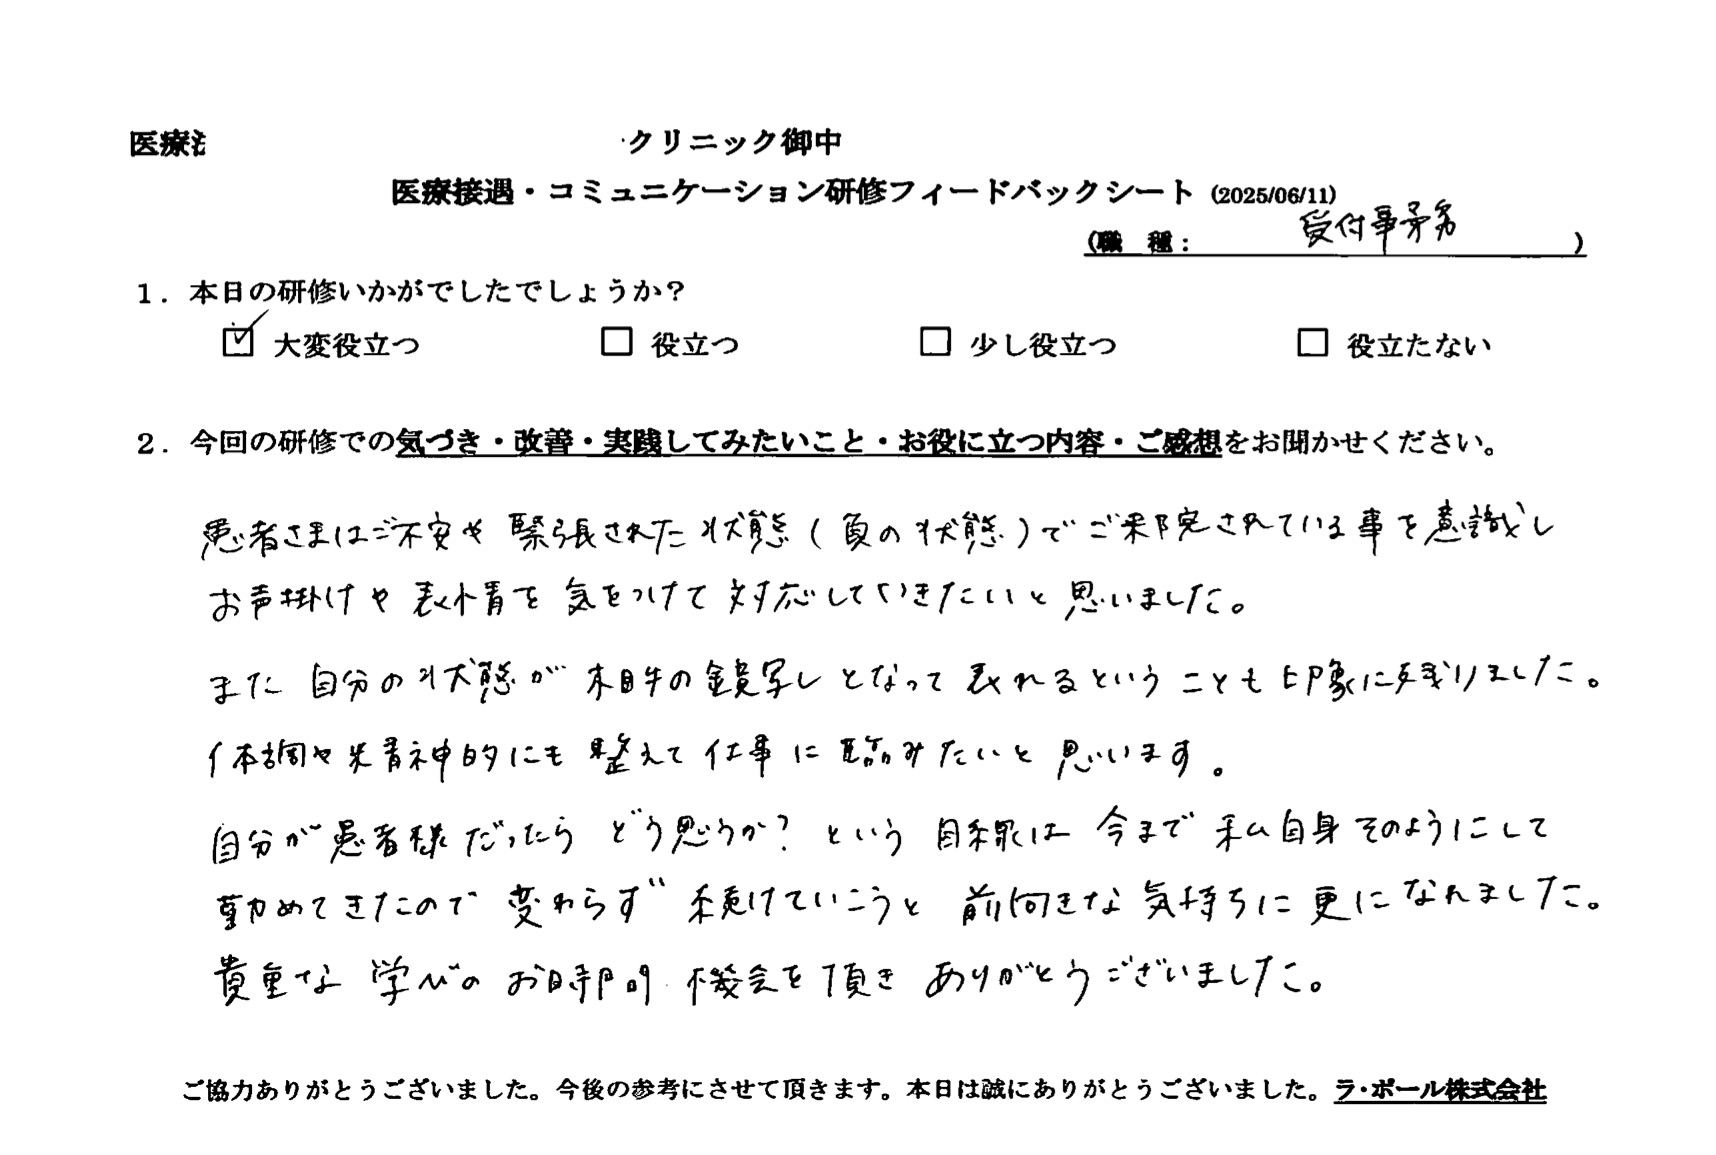 医療法
クリニック御中
医療接遇・コミュニケーション研修フィードバックシート (2025/06/11)
(職 種: 受付事務 )
1. 本日の研修いかがでしたでしょうか?
☑ 大変役立つ □ 役立つ □ 少し役立つ □ 役立たない
2. 今回の研修での気づき・改善・実践してみたいこと・お役に立つ内容・ご感想をお聞かせください。
患者さまはご不安や緊張された状態(負の状態)でご来院されている事を意識し
お声掛けや表情を気をつけて対応していきたいと思いました。
また自分の状態が相手の鏡写しとなって表れるということも印象に残りました。
体調や精神的にも整えて仕事に臨みたいと思います。
自分が患者様だったらどう思うか?という目線は今まで私自身そのようにして
勤めてきたので変わらず続けていこうと前向きな気持ちに更になれました。
貴重な学びのお時間機会を頂きありがとうございました。
ご協力ありがとうございました。今後の参考にさせて頂きます。本日は誠にありがとうございました。ラ・ポール株式会社